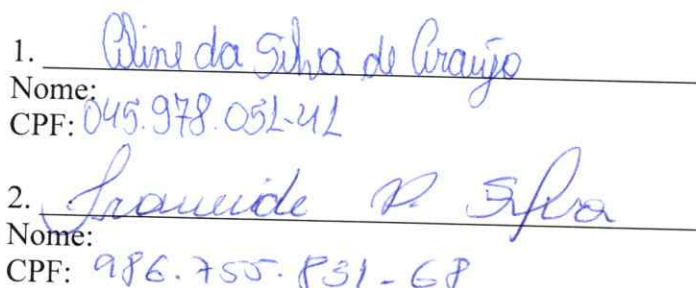 1. Aline da Silva de Araújo
Nome:
CPF: 045.978.051-41
2. Iraneide P. Silva
Nome:
CPF: 986.755.831-68